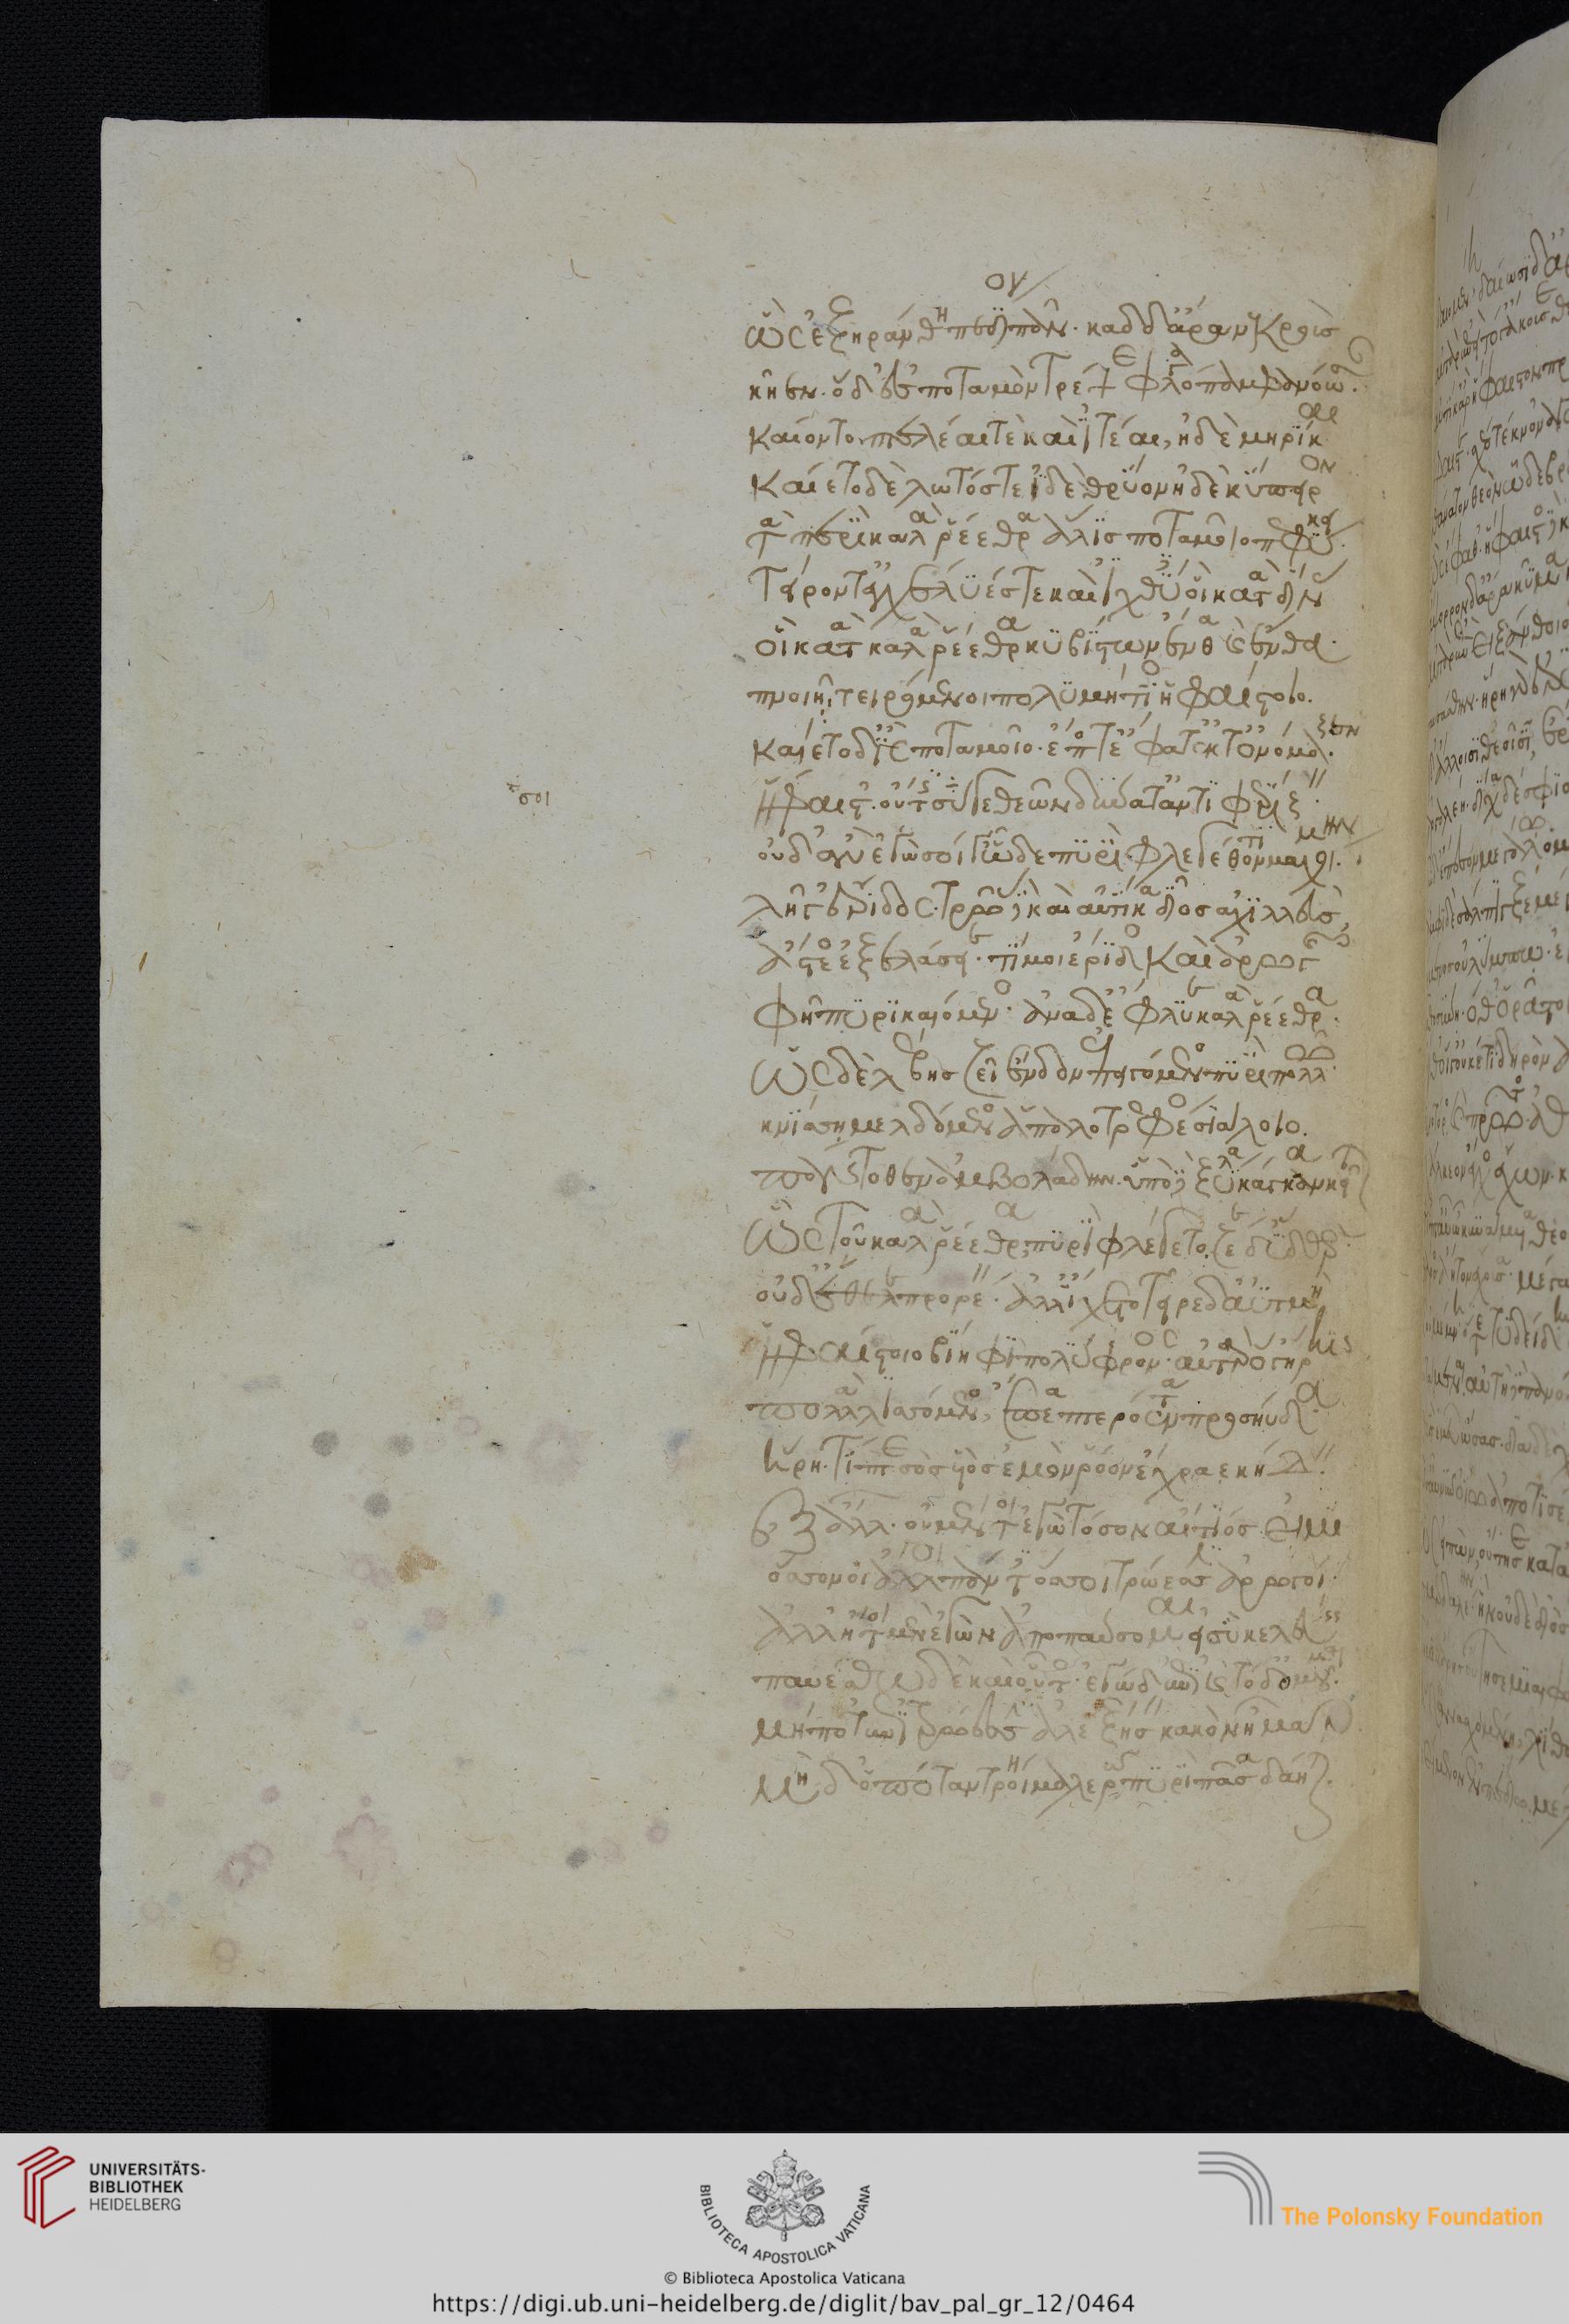 ὣς ἐξηράνθη πεδίον πᾶν. καδδ ἄρα νεκροὺς
κῆεν. ὁ δ ἐς ποταμὸν τρέψε φλόγα παμφανόωσαν.
καίοντο πτελέαι τὲ καὶ ἰτέαι, ἠδὲ μυρῖκαι
καίετο δὲ λωτός τε ἰδὲ θρύον ἠδὲ κύπειρον
τὰ περὶ καλὰ ῥέεθρα ἅλις ποταμοῖο πεφύκει.
τείροντ ἐγχέλυές τε καὶ ἰχθύες οἳ κατὰ δίνας
οἳ κατὰ καλὰ ῥέεθρα κυβίστων ἔνθα καὶ ἔνθα.
πνοιῇ τειρόμενοι πολυμήτιος ἡφαίστοιο.
καίετο δ ἲς ποταμοῖο. ἔπος τ ἔφατ ἔκ τ ὀνόμαζεν.
ἥφαιστ. οὔτις σοί γε θεῶν δύνατ ἀντιφερίζειν.
οὐδ ἂν ἐγὼ σοί γ ὧδε πυρὶ φλεγέθοντι μαχοίμην.
λῆγ ἔριδος. τρῶας δὲ καὶ αὐτίκα δῖος ἀχιλλεὺς
σοι
ἄστεος ἐξελάσειε. τί μοι ἔριδος καὶ ἀρωγῆς
φῆ πυρὶ καιόμενος. ἀνὰ δ ἔφλυε καλὰ ῥέεθρα.
ὡς δὲ λέβης ζεῖ ἔνδον ἐπειγόμενος πυρὶ πολλῷ
κνίσσῃ μελδόμενος ἁπαλοτρεφέος σιάλοιο.
πάντοθεν ἀμβολάδην. ὑπὸ δὲ ξύλα κάγκανα κεῖται
ὣς τοῦ καλὰ ῥέεθρα πυρὶ φλέγετο. ζέε δ ὕδωρ.
οὐδ ἔθελε προρέειν. ἀλλ ἴσχετο τεῖρε δ ἀϋτμὴ
ἡφαίστοιο βίηφι πολύφρονος. αὐτὰρ ὅγ ἥρην
πολλὰ λισσόμενος, ἔπεα πτερόεντα προσηύδα.
ἥρη. τίπτε σὸς υἱὸς ἐμὸν ῥόον ἔχραε κήδειν.
ἐξ ἄλλων. οὐ μέν τοι ἐγὼ τόσον αἴτιός εἰμι
ὅσσον οἱ ἄλλοι πάντες ὅσοι τρώεσσιν ἀρωγοί.
ἀλλ ἤτοι μὲν ἐγὼν ἀποπαύσομαι εἰ σὺ κελεύεις
παυέσθω δὲ καὶ οὗτος. ἐγὼ δ ἐπὶ καὶ τόδ ὀμοῦμαι.
μήποτ ἐπὶ τρώεσσιν ἀλεξήσειν κακὸν ἦμαρ.
μὴ δ ὁπότ ἂν τροίη μαλερῷ πυρὶ πᾶσα δάηται.
UNIVERSITÄTS-
BIBLIOTHEK
HEIDELBERG
BIBLIOTECA APOSTOLICA VATICANA
The Polonsky Foundation
© Biblioteca Apostolica Vaticana
https://digi.ub.uni-heidelberg.de/diglit/bav_pal_gr_12/0464